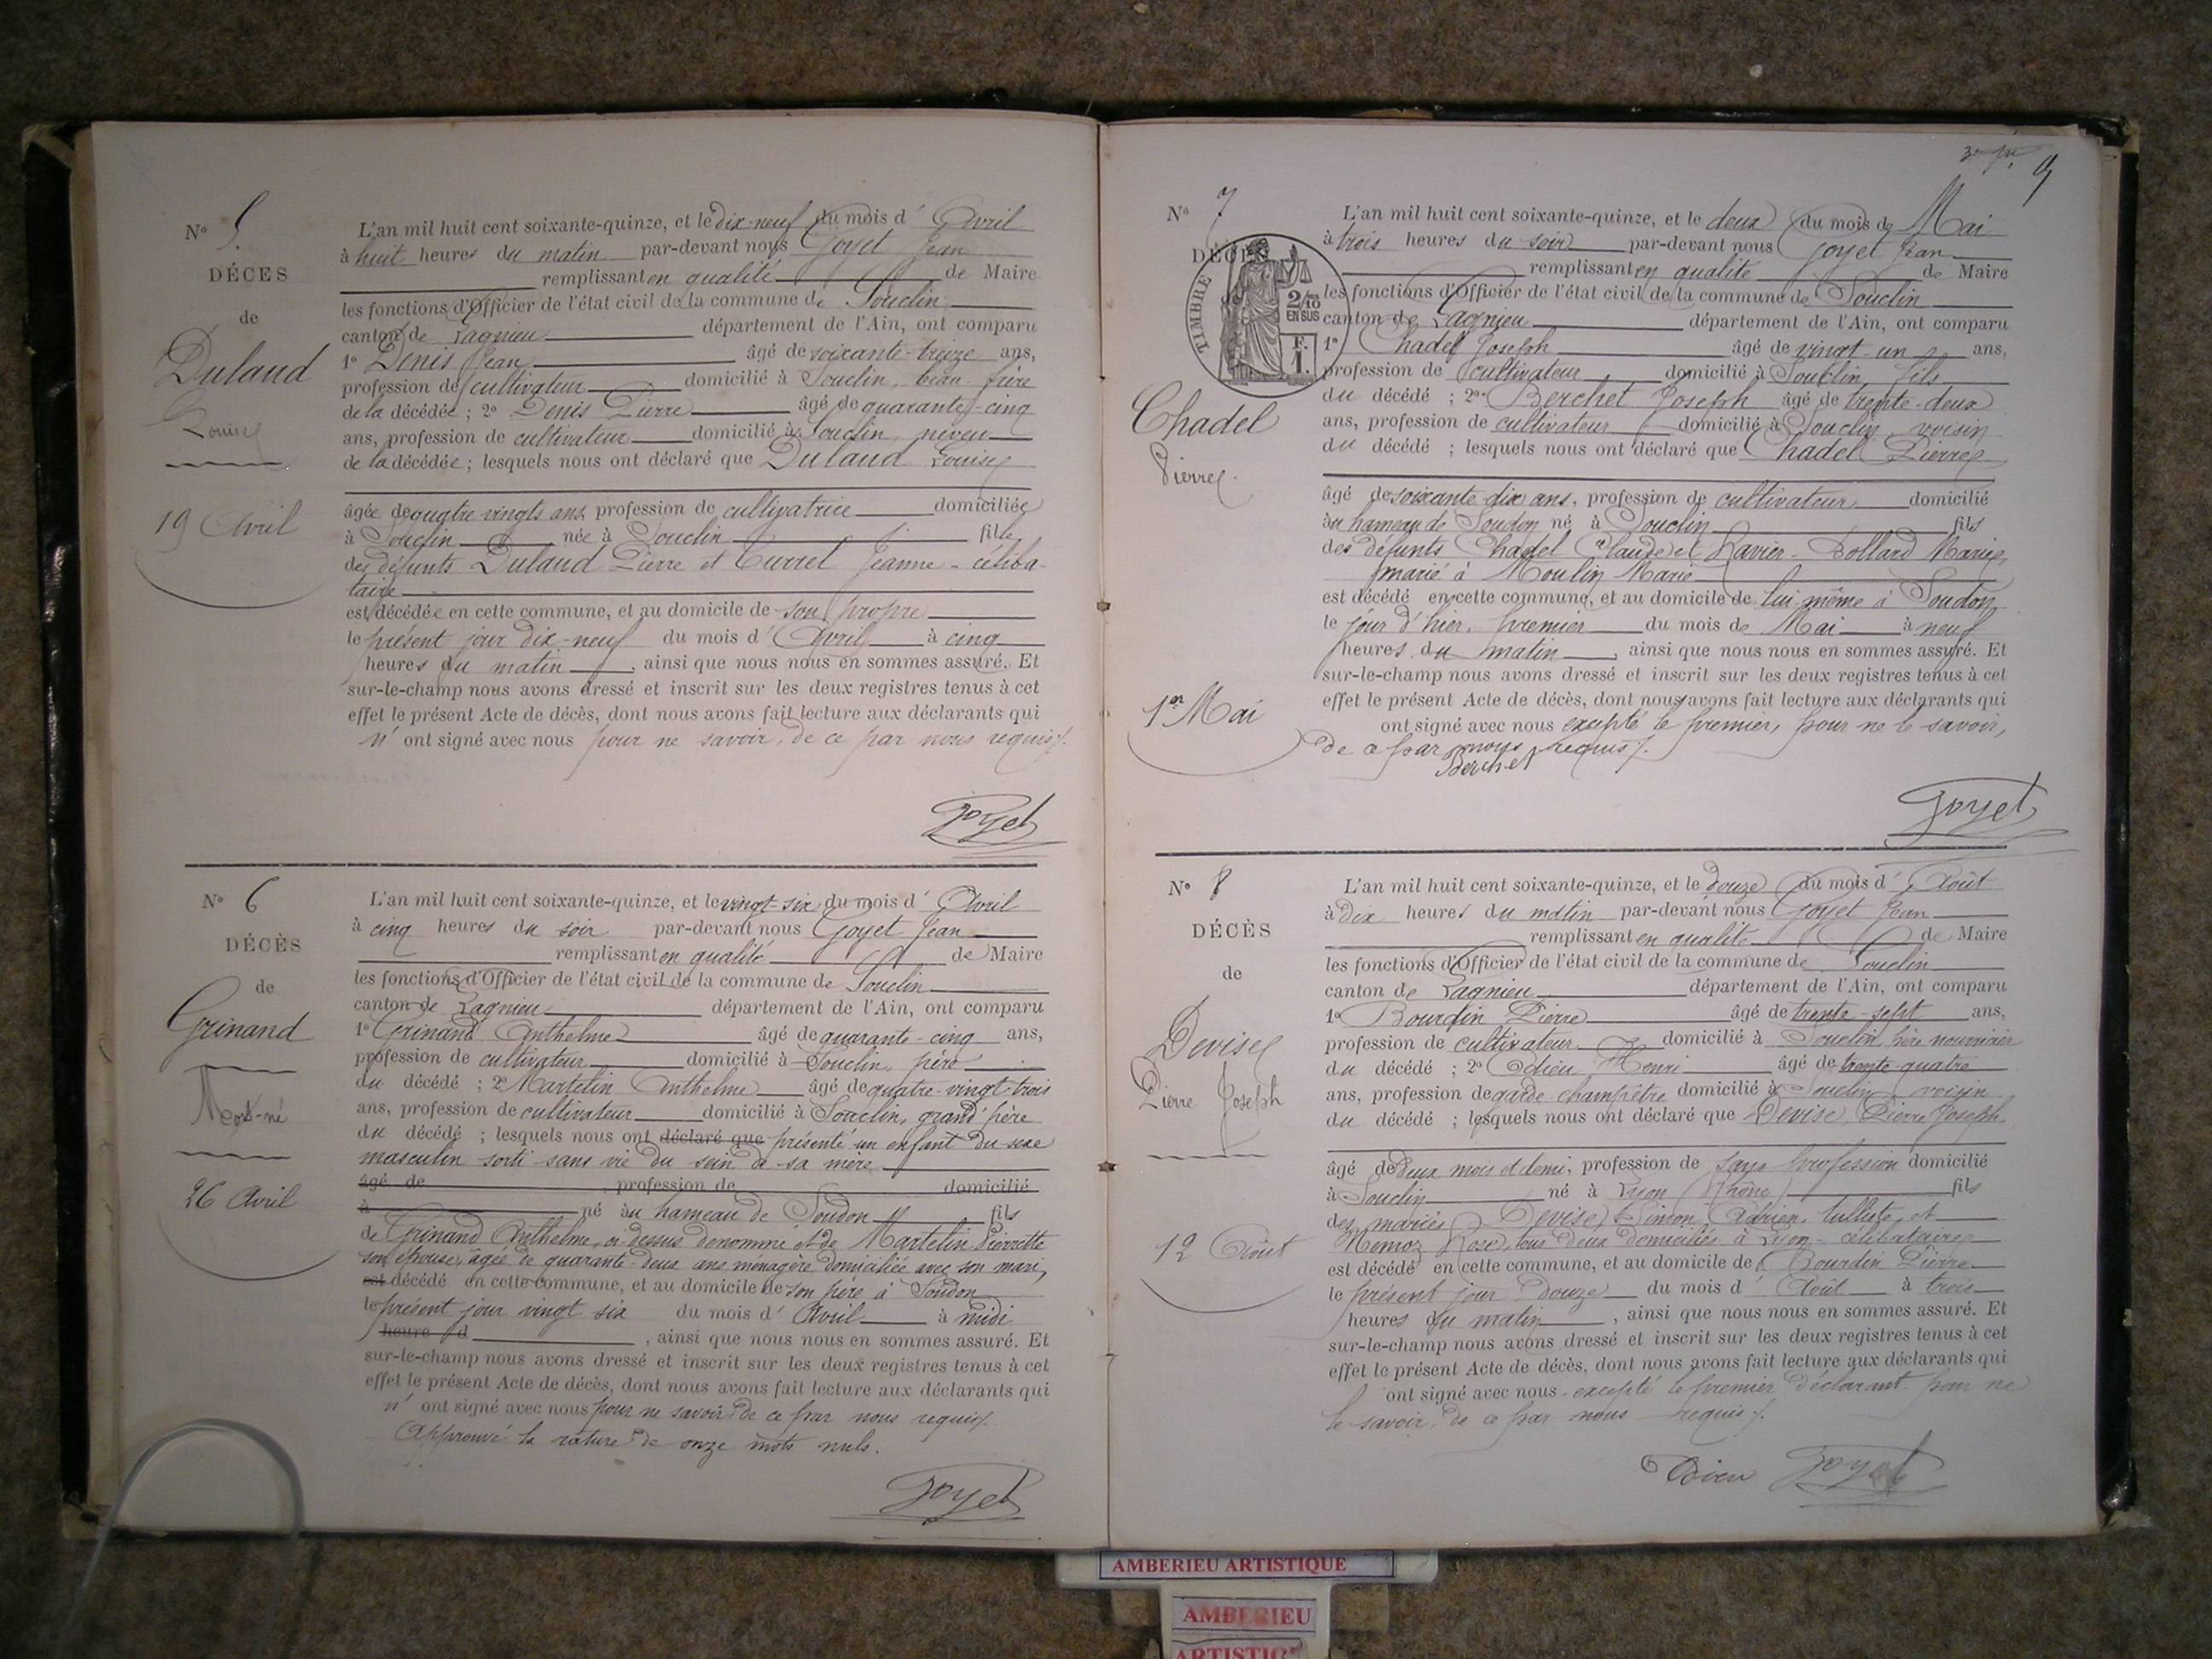 N° 5.
DÉCES
de
Dulaud
Louise
19 Avril
L'an mil huit cent soixante-quinze, et le dix-neuf du mois d' Avril
à huit heures du matin par-devant nous Goyet Jean
remplissant en qualité de Maire
les fonctions d'Officier de l'état civil de la commune de Souclin
canton de Lagnieu département de l'Ain, ont comparu
1° Denis Jean âgé de soixante-treize ans,
profession de cultivateur domicilié à Souclin, beau-frère
de la décédée ; 2° Denis Pierre âgé de quarante-cinq
ans, profession de cultivateur domicilié à Souclin, neveu
de la décédée ; lesquels nous ont déclaré que Dulaud Louise
âgée de quatre-vingts ans, profession de cultivatrice domiciliée
à Souclin née à Souclin fille
des défunts Dulaud Pierre et Curret Jeanne - céliba-
taire
est décédée en cette commune, et au domicile de son propre
le présent jour dix-neuf du mois d' Avril à cinq
heures du matin, ainsi que nous nous en sommes assuré. Et
sur-le-champ nous avons dressé et inscrit sur les deux registres tenus à cet
effet le présent Acte de décès, dont nous avons fait lecture aux déclarants qui
n' ont signé avec nous pour ne savoir, de ce par nous requis.
Goyet
N° 6
DÉCÈS
de
Grinand
Mort-né
26 Avril
L'an mil huit cent soixante-quinze, et le vingt-six du mois d' Avril
à cinq heures du soir par-devant nous Goyet Jean
remplissant en qualité de Maire
les fonctions d'Officier de l'état civil de la commune de Souclin
canton de Lagnieu département de l'Ain, ont comparu
1° Grinand Anthelme âgé de quarante-cinq ans,
profession de cultivateur domicilié à Souclin, père
du décédé ; 2° Martelin Anthelme âgé de quatre-vingt-trois
ans, profession de cultivateur domicilié à Souclin, grand'père
du décédé ; lesquels nous ont déclaré que présenté un enfant du sexe
masculin sorti sans vie du sein de sa mère
âgé de , profession de domicilié
à né au hameau de Soudon fils
de Grinand Anthelme, ci-dessus dénommé et de Martelin Pierrette
son épouse, âgée de quarante-deux ans ménagère domiciliée avec son mari,
est décédé en cette commune, et au domicile de son père à Soudon
le présent jour vingt six du mois d' Avril à midi
heure d , ainsi que nous nous en sommes assuré. Et
sur-le-champ nous avons dressé et inscrit sur les deux registres tenus à cet
effet le présent Acte de décès, dont nous avons fait lecture aux déclarants qui
n' ont signé avec nous pour ne savoir, de ce par nous requis.
Approuvé la rature de onze mots nuls.
Goyet
N° 7
DÉCÈS
TIMBRE
2/10
EN SUS
F.
1.
Chadel
Pierre.
1er Mai
L'an mil huit cent soixante-quinze, et le deux du mois de Mai
à trois heures du soir par-devant nous Goyet Jean
remplissant en qualité de Maire
les fonctions d'Officier de l'état civil de la commune de Souclin
canton de Lagnieu département de l'Ain, ont comparu
1° Chadel Joseph âgé de vingt-un ans,
profession de cultivateur domicilié à Souclin fils
du décédé ; 2° Berchet Joseph âgé de trente-deux
ans, profession de cultivateur domicilié à Souclin, voisin
du décédé ; lesquels nous ont déclaré que Chadel Pierre
âgé de soixante-dix ans, profession de cultivateur domicilié
au hameau de Soudon né à Souclin fils
des défunts Chadel Claude et Ravier-Dollard Marie,
marié à Moulin Marie
est décédé en cette commune, et au domicile de lui-même à Soudon
le jour d'hier, premier du mois de Mai à neuf
heures du matin, ainsi que nous nous en sommes assuré. Et
sur-le-champ nous avons dressé et inscrit sur les deux registres tenus à cet
effet le présent Acte de décès, dont nous avons fait lecture aux déclarants qui
ont signé avec nous excepté le premier, pour ne le savoir,
de ce par nous requis.
Berchet
Goyet
N° 8
DÉCÈS
de
Devise
Pierre Joseph
12 Août
L'an mil huit cent soixante-quinze, et le douze du mois d' Août
à dix heures du matin par-devant nous Goyet Jean
remplissant en qualité de Maire
les fonctions d'Officier de l'état civil de la commune de Souclin
canton de Lagnieu département de l'Ain, ont comparu
1° Bourdin Pierre âgé de trente-sept ans,
profession de cultivateur domicilié à Souclin, père nourricier
du décédé ; 2° Odieu Henri âgé de trente-quatre
ans, profession de garde champêtre domicilié à Souclin, voisin
du décédé ; lesquels nous ont déclaré que Devise Pierre Joseph
âgé de deux mois et demi, profession de sans profession domicilié
à Souclin né à Lyon (Rhône) fils
des mariés Devise Simon Adrien, tulliste, et
Memoz Rose, tous deux domiciliés à Lyon - célibataire
est décédé en cette commune, et au domicile de Bourdin Pierre
le présent jour douze du mois d' Août à trois
heures du matin, ainsi que nous nous en sommes assuré. Et
sur-le-champ nous avons dressé et inscrit sur les deux registres tenus à cet
effet le présent Acte de décès, dont nous avons fait lecture aux déclarants qui
ont signé avec nous - excepté le premier déclarant pour ne
le savoir, de ce par nous requis.
Goyet
AMBERIEU ARTISTIQUE
AMBERIEU